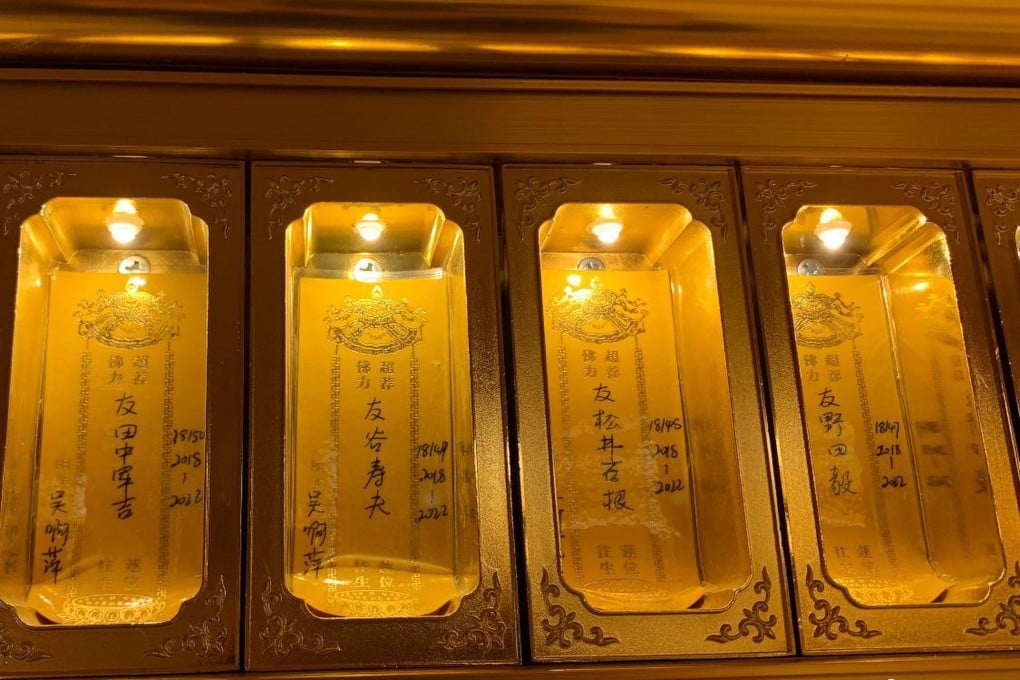 佛力超荐
友田中军吉
18/50
2018
|
2022
吴啊萍
往生蓮位
佛力超荐
友谷寿夫
18/49
2018
|
2022
吴啊萍
往生蓮位
佛力超荐
友松井石根
18/48
2018
|
2022
往生蓮位
佛力超荐
友野田毅
18/47
2018
|
2022
往生蓮位